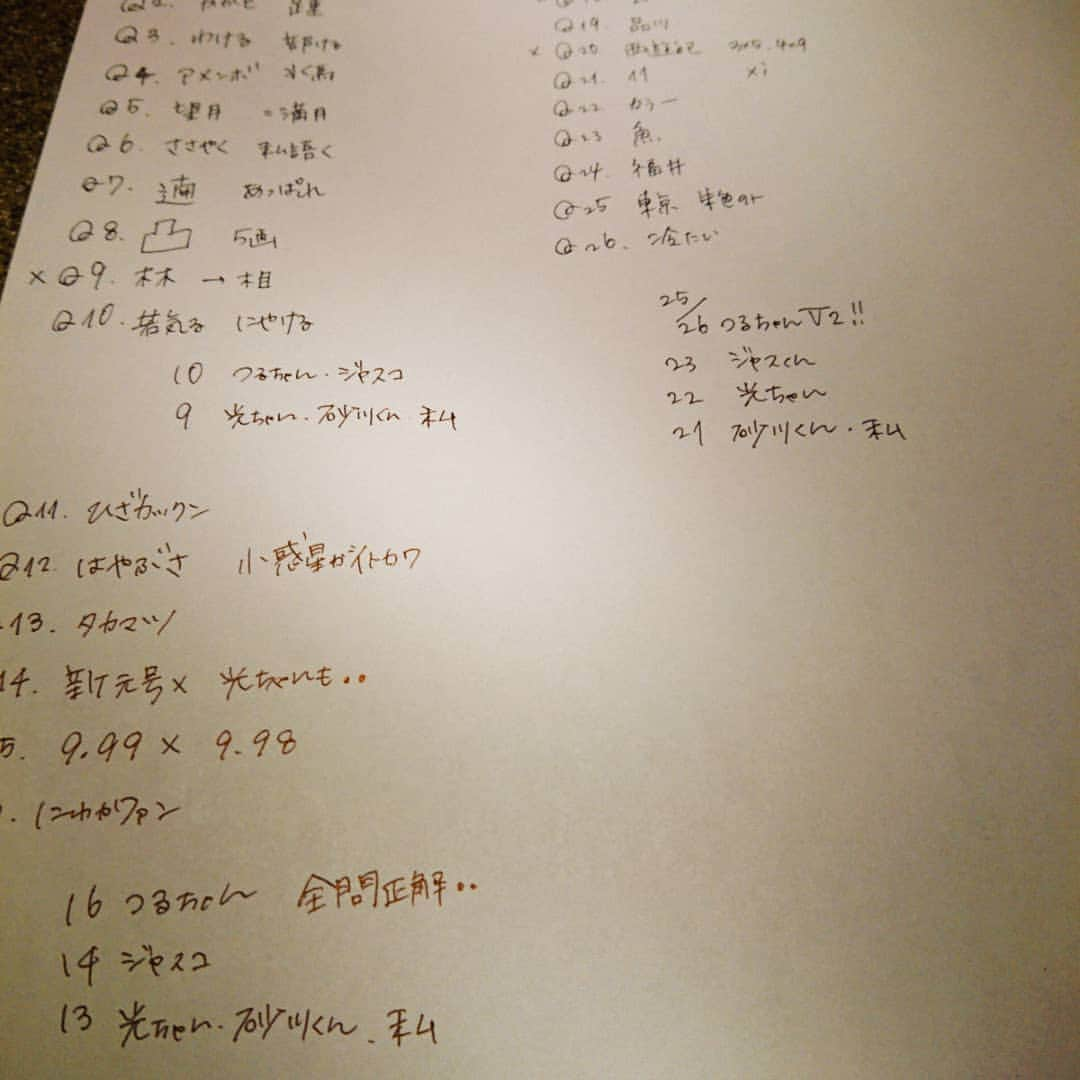 Q3. わける
Q4. アメンボ 水馬
Q5. 望月 = 満月
Q6. ささやく 私語く
Q7. 遖 あっぱれ
Q8. 凸 5画
× Q9. 林 → 相
Q10. 若気る にやける
10 つるちゃん・ジャスコ
9 光ちゃん・砂川くん・私
Q11. ひざカックン
Q12. はやぶさ 小惑星がイトカワ
13. タカマツ
14. 新元号× 光ちゃんも・・
5. 9.99 × 9.98
. にわかファン
16 つるちゃん 全問正解・・
14 ジャスコ
13 光ちゃん・砂川くん、私
Q19. 品川
× Q20
Q21. 11 xi
Q22 カラー
Q23 魚、
Q24. 福井
Q25 東京
Q26. 冷たい
25/26 つるちゃんV2!!
23 ジャスくん
22 光ちゃん
21 砂川くん・私